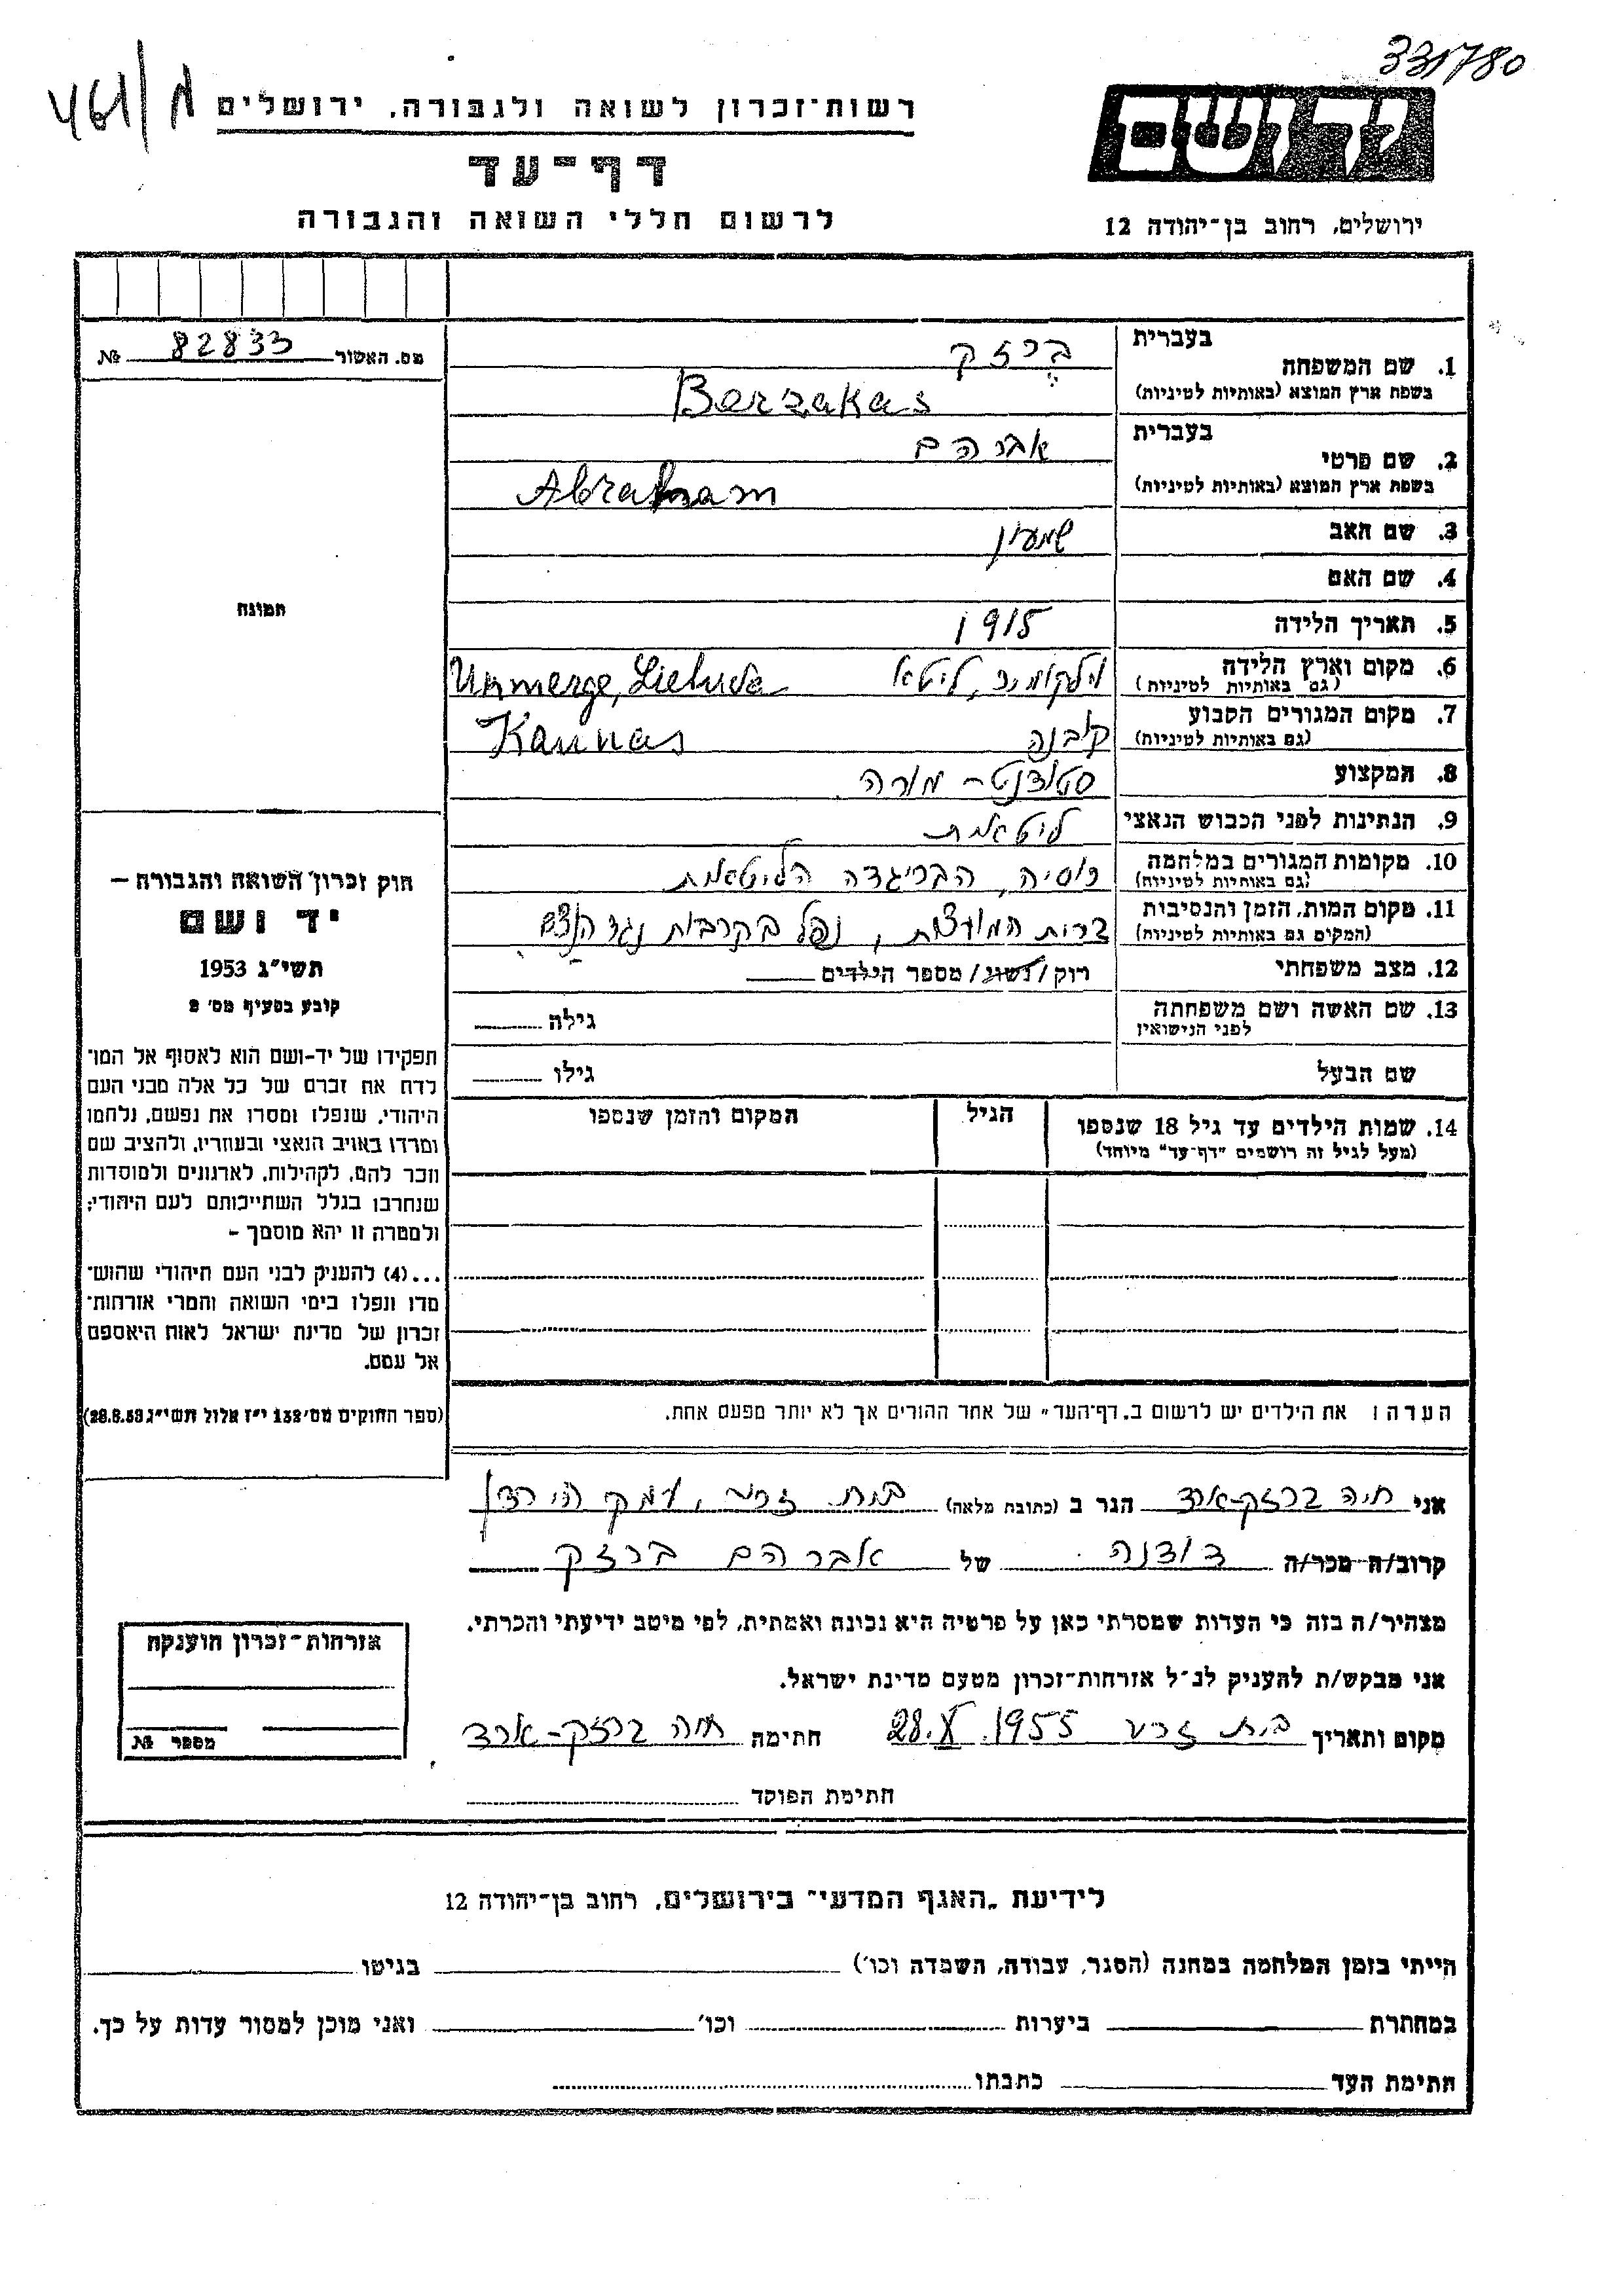 331780
461/א
רשות־זכרון לשואה ולגבורה, ירושלים
דף־עד
לרשום חללי השואה והגבורה
יד ושם
ירושלים, רחוב בן־יהודה 12
מס. האשור 82833 №
תמונה
בעברית ברזק
1. שם המשפחה
בשפת ארץ המוצא (באותיות לטיניות) Berzakas
בעברית אברהם
2. שם פרטי
בשפת ארץ המוצא (באותיות לטיניות) Abraham
3. שם האב שמעון
4. שם האם
5. תאריך הלידה 1915
6. מקום וארץ הלידה וילקומיר, ליטא
(גם באותיות לטיניות) Ukmerge, Lietuva
7. מקום המגורים הקבוע קובנה
(גם באותיות לטיניות) Kaunas
8. המקצוע סטודנט - מורה
9. הנתינות לפני הכבוש הנאצי ליטאית
10. מקומות המגורים במלחמה רוסיה, הבריגדה הליטאית
(גם באותיות לטיניות)
11. מקום המות, הזמן והנסיבות ברית המועצות, נפל בקרבות נגד הנאצים
(המקום גם באותיות לטיניות)
12. מצב משפחתי רוק/נשוי/מספר הילדים
13. שם האשה ושם משפחתה גילה
לפני הנישואין
שם הבעל גילו
14. שמות הילדים עד גיל 18 שנספו הגיל המקום והזמן שנספו
(מעל לגיל זה רושמים "דף־עד" מיוחד)
חוק זכרון השואה והגבורה —
יד ושם
תשי״ג 1953
קובע בסעיף מס׳ 2
תפקידו של יד-ושם הוא לאסוף אל המו־
לדת את זכרם של כל אלה מבני העם
היהודי, שנפלו ומסרו את נפשם, נלחמו
ומרדו באויב הנאצי ובעוזריו, ולהציב שם
וזכר להם, לקהילות, לארגונים ולמוסדות
שנחרבו בגלל השתייכותם לעם היהודי;
ולמטרה זו יהא מוסמך —
...(4) להעניק לבני העם היהודי שהוש־
מדו ונפלו בימי השואה והמרי אזרחות־
זכרון של מדינת ישראל לאות היאספם
אל עמם.
(ספר החוקים מס׳ 132 י״ז אלול תשי״ג 28.8.53)
הערה: את הילדים יש לרשום ב„דף־העד״ של אחד ההורים אך לא יותר מפעם אחת.
אני חיה ברזק-ארד הגר ב (כתובת מלאה) בית זרע, עמק הירדן
קרוב/ה מכר/ה דודנה של אברהם ברזק
מצהיר/ה בזה כי העדות שמסרתי כאן על פרטיה היא נכונה ואמתית, לפי מיטב ידיעתי והכרתי.
אני מבקש/ת להעניק לנ״ל אזרחות־זכרון מטעם מדינת ישראל.
מקום ותאריך בית זרע 28.X.1955 חתימה חיה ברזק-ארד
חתימת הפוקד
אזרחות־זכרון הוענקה
מספר №
לידיעת „האגף המדעי״ בירושלים, רחוב בן־יהודה 12
הייתי בזמן המלחמה במחנה (הסגר, עבודה, השמדה וכו׳) בגיטו
במחתרת ביערות וכו׳ ואני מוכן למסור עדות על כך.
חתימת העד כתבתו